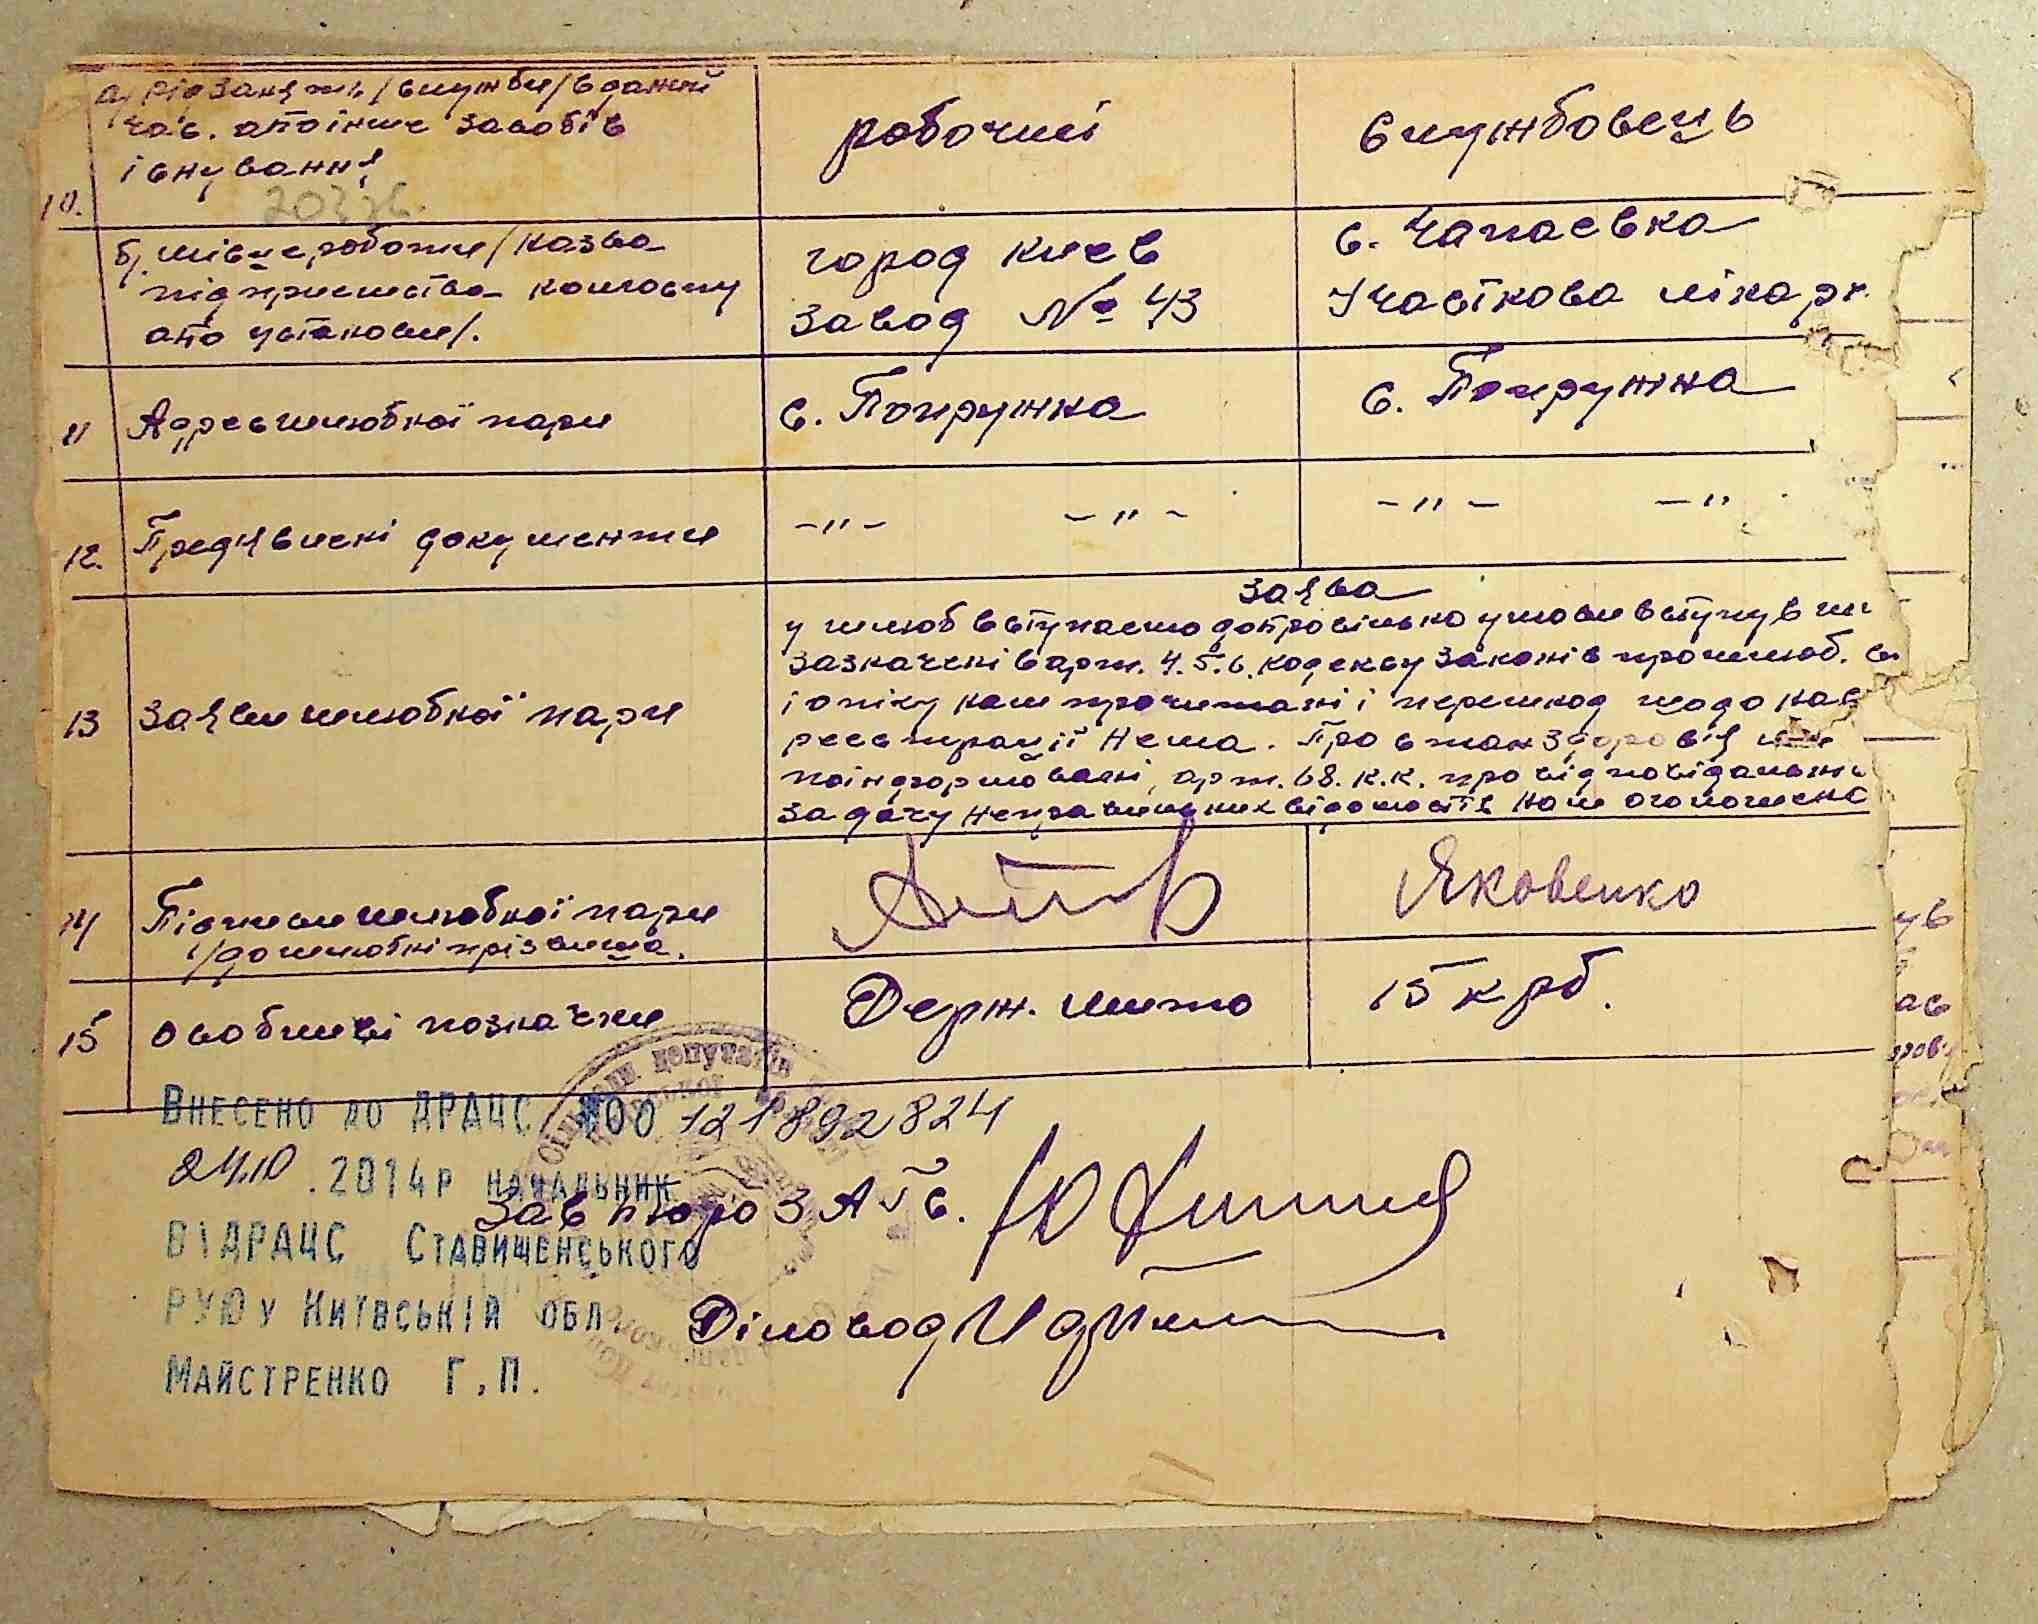 а, рід занять /служби/ в даний
час. або інше засобів
існування
10.
робочий
службовець
б, місце роботи /назва
підприємства колгоспу
або установи/.
город Киев
завод № 43
с. Чапаєвка
Участкова лікарн
11 Адрес шлюбної пари
с. Погружка
с. Погружна
12. Предявлені документи
-"- -"-
-"- -"
13 Заяви шлюбної пари
Заява
у шлюб вступаємо добровільно умови вступу в шл
зазначені в арт. 4.5.6. кодексу законів про шлюб.
і опіку нам прочитані і перешкод щодо нав
реєстрації нема. Про стан здоровія
поінформовані, арт. 68. к.к. про відповідальн
за дачу неправильних відомостів нам оголошено
14 Підписи шлюбної пари
/дошлюбні прізвища.
Яковенко
15 особливі позначки
Держ. мито
15 крб.
Внесено до ДРАЦС №00 121892824
24.10.2014р начальник
Зав бюро ЗАГС.
ВІДРАЦС Ставищенського
РУЮ у Київській обл
Діловод
Майстренко Г.П.